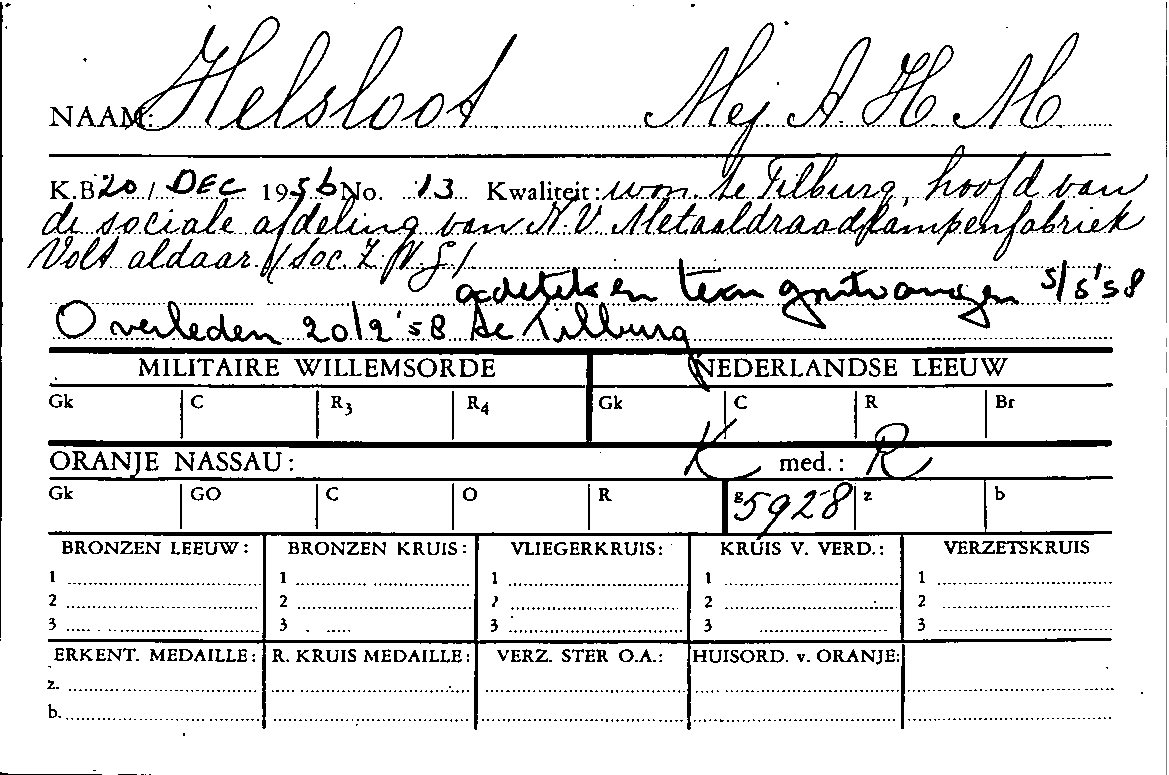 NAAM: Helsloot Mej A. H. M.
K.B. 20 / DEC 1956 No. 13 Kwaliteit: won. te Tilburg, hoofd van
de sociale afdeling van N.V. Metaaldraadlampenfabriek
Volt aldaar (Soc. Z. W. G.)
gedeteken terugontvangen 5/5'58
Overleden 20/2'58 te Tilburg
MILITAIRE WILLEMSORDE NEDERLANDSE LEEUW
Gk C R3 R4 Gk C R Br
ORANJE NASSAU: K med.: R
Gk GO C O R g 5928 z b
BRONZEN LEEUW: BRONZEN KRUIS: VLIEGERKRUIS: KRUIS V. VERD.: VERZETSKRUIS
1 1 1 1 1
2 2 2 2 2
3 3 3 3 3
ERKENT. MEDAILLE: R. KRUIS MEDAILLE: VERZ. STER O.A.: HUISORD. v. ORANJE:
z.
b.